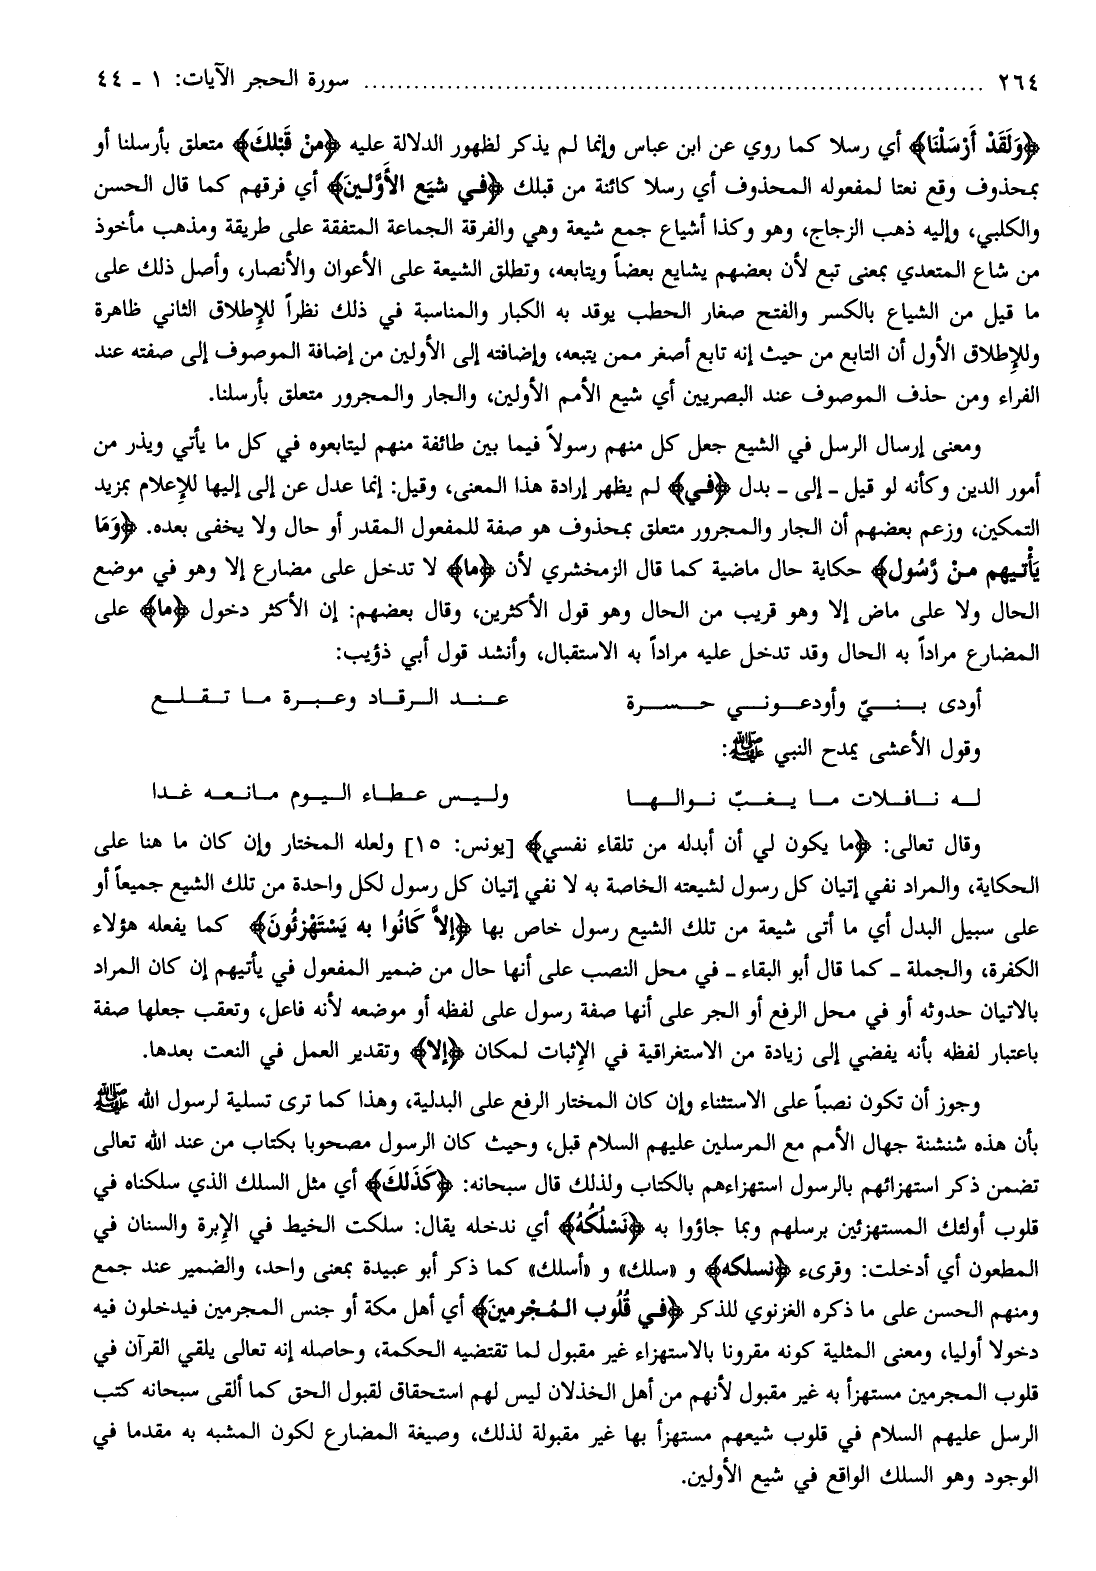 ٢٦٤ ........ سورة الحجر الآيات: ١ ـ ٤٤
﴿وَلَقَدْ أَرْسَلْنَا﴾ أي رسلا كما روي عن ابن عباس وإنما لم يذكر لظهور الدلالة عليه ﴿مِنْ قَبْلِكَ﴾ متعلق بأرسلنا أو
بمحذوف وقع نعتا لمفعوله المحذوف أي رسلا كائنة من قبلك ﴿فِي شِيَعِ الأَوَّلِينَ﴾ أي فرقهم كما قال الحسن
والكلبي، وإليه ذهب الزجاج، وهو وكذا أشياع جمع شيعة وهي والفرقة الجماعة المتفقة على طريقة ومذهب مأخوذ
من شاع المتعدي بمعنى تبع لأن بعضهم يشايع بعضاً ويتابعه، وتطلق الشيعة على الأعوان والأنصار، وأصل ذلك على
ما قيل من الشياع بالكسر والفتح صغار الحطب يوقد به الكبار والمناسبة في ذلك نظراً للإطلاق الثاني ظاهرة
وللإطلاق الأول أن التابع من حيث إنه تابع أصغر ممن يتبعه، وإضافته إلى الأولين من إضافة الموصوف إلى صفته عند
الفراء ومن حذف الموصوف عند البصريين أي شيع الأمم الأولين، والجار والمجرور متعلق بأرسلنا.
ومعنى إرسال الرسل في الشيع جعل كل منهم رسولاً فيما بين طائفة منهم ليتابعوه في كل ما يأتي ويذر من
أمور الدين وكأنه لو قيل ـ إلى ـ بدل ﴿في﴾ لم يظهر إرادة هذا المعنى، وقيل: إنما عدل عن إلى إليها للإعلام بمزيد
التمكين، وزعم بعضهم أن الجار والمجرور متعلق بمحذوف هو صفة للمفعول المقدر أو حال ولا يخفى بعده. ﴿وَمَا
يَأْتيهم منْ رَّسُول﴾ حكاية حال ماضية كما قال الزمخشري لأن ﴿ما﴾ لا تدخل على مضارع إلا وهو في موضع
الحال ولا على ماض إلا وهو قريب من الحال وهو قول الأكثرين، وقال بعضهم: إن الأكثر دخول ﴿ما﴾ على
المضارع مراداً به الحال وقد تدخل عليه مراداً به الاستقبال، وأنشد قول أبي ذؤيب:
أودى بنيّ وأودعوني حسرة عند الرقاد وعبرة ما تقلع
وقول الأعشى يمدح النبي ﷺ:
له نافلات ما يغبّ نوالها وليس عطاء اليوم مانعه غدا
وقال تعالى: ﴿ما يكون لي أن أبدله من تلقاء نفسي﴾ [يونس: ١٥] ولعله المختار وإن كان ما هنا على
الحكاية، والمراد نفي إتيان كل رسول لشيعته الخاصة به لا نفي إتيان كل رسول لكل واحدة من تلك الشيع جميعاً أو
على سبيل البدل أي ما أتى شيعة من تلك الشيع رسول خاص بها ﴿إلاَّ كَانُوا به يَسْتَهْزِئُونَ﴾ كما يفعله هؤلاء
الكفرة، والجملة ـ كما قال أبو البقاء ـ في محل النصب على أنها حال من ضمير المفعول في يأتيهم إن كان المراد
بالاتيان حدوثه أو في محل الرفع أو الجر على أنها صفة رسول على لفظه أو موضعه لأنه فاعل، وتعقب جعلها صفة
باعتبار لفظه بأنه يفضي إلى زيادة من الاستغراقية في الإثبات لمكان ﴿إلا﴾ وتقدير العمل في النعت بعدها.
وجوز أن تكون نصباً على الاستثناء وإن كان المختار الرفع على البدلية، وهذا كما ترى تسلية لرسول الله ﷺ
بأن هذه شنشنة جهال الأمم مع المرسلين عليهم السلام قبل، وحيث كان الرسول مصحوبا بكتاب من عند الله تعالى
تضمن ذكر استهزائهم بالرسول استهزاءهم بالكتاب ولذلك قال سبحانه: ﴿كَذَلكَ﴾ أي مثل السلك الذي سلكناه في
قلوب أولئك المستهزئين برسلهم وبما جاؤوا به ﴿نَسْلُكُهُ﴾ أي ندخله يقال: سلكت الخيط في الإبرة والسنان في
المطعون أي أدخلت: وقرىء ﴿نسلكه﴾ و «سلك» و «أسلك» كما ذكر أبو عبيدة بمعنى واحد، والضمير عند جمع
ومنهم الحسن على ما ذكره الغزنوي للذكر ﴿في قُلُوب المُجْرمينَ﴾ أي أهل مكة أو جنس المجرمين فيدخلون فيه
دخولا أوليا، ومعنى المثلية كونه مقرونا بالاستهزاء غير مقبول لما تقتضيه الحكمة، وحاصله إنه تعالى يلقي القرآن في
قلوب المجرمين مستهزأ به غير مقبول لأنهم من أهل الخذلان ليس لهم استحقاق لقبول الحق كما ألقى سبحانه كتب
الرسل عليهم السلام في قلوب شيعهم مستهزأ بها غير مقبولة لذلك، وصيغة المضارع لكون المشبه به مقدما في
الوجود وهو السلك الواقع في شيع الأولين.